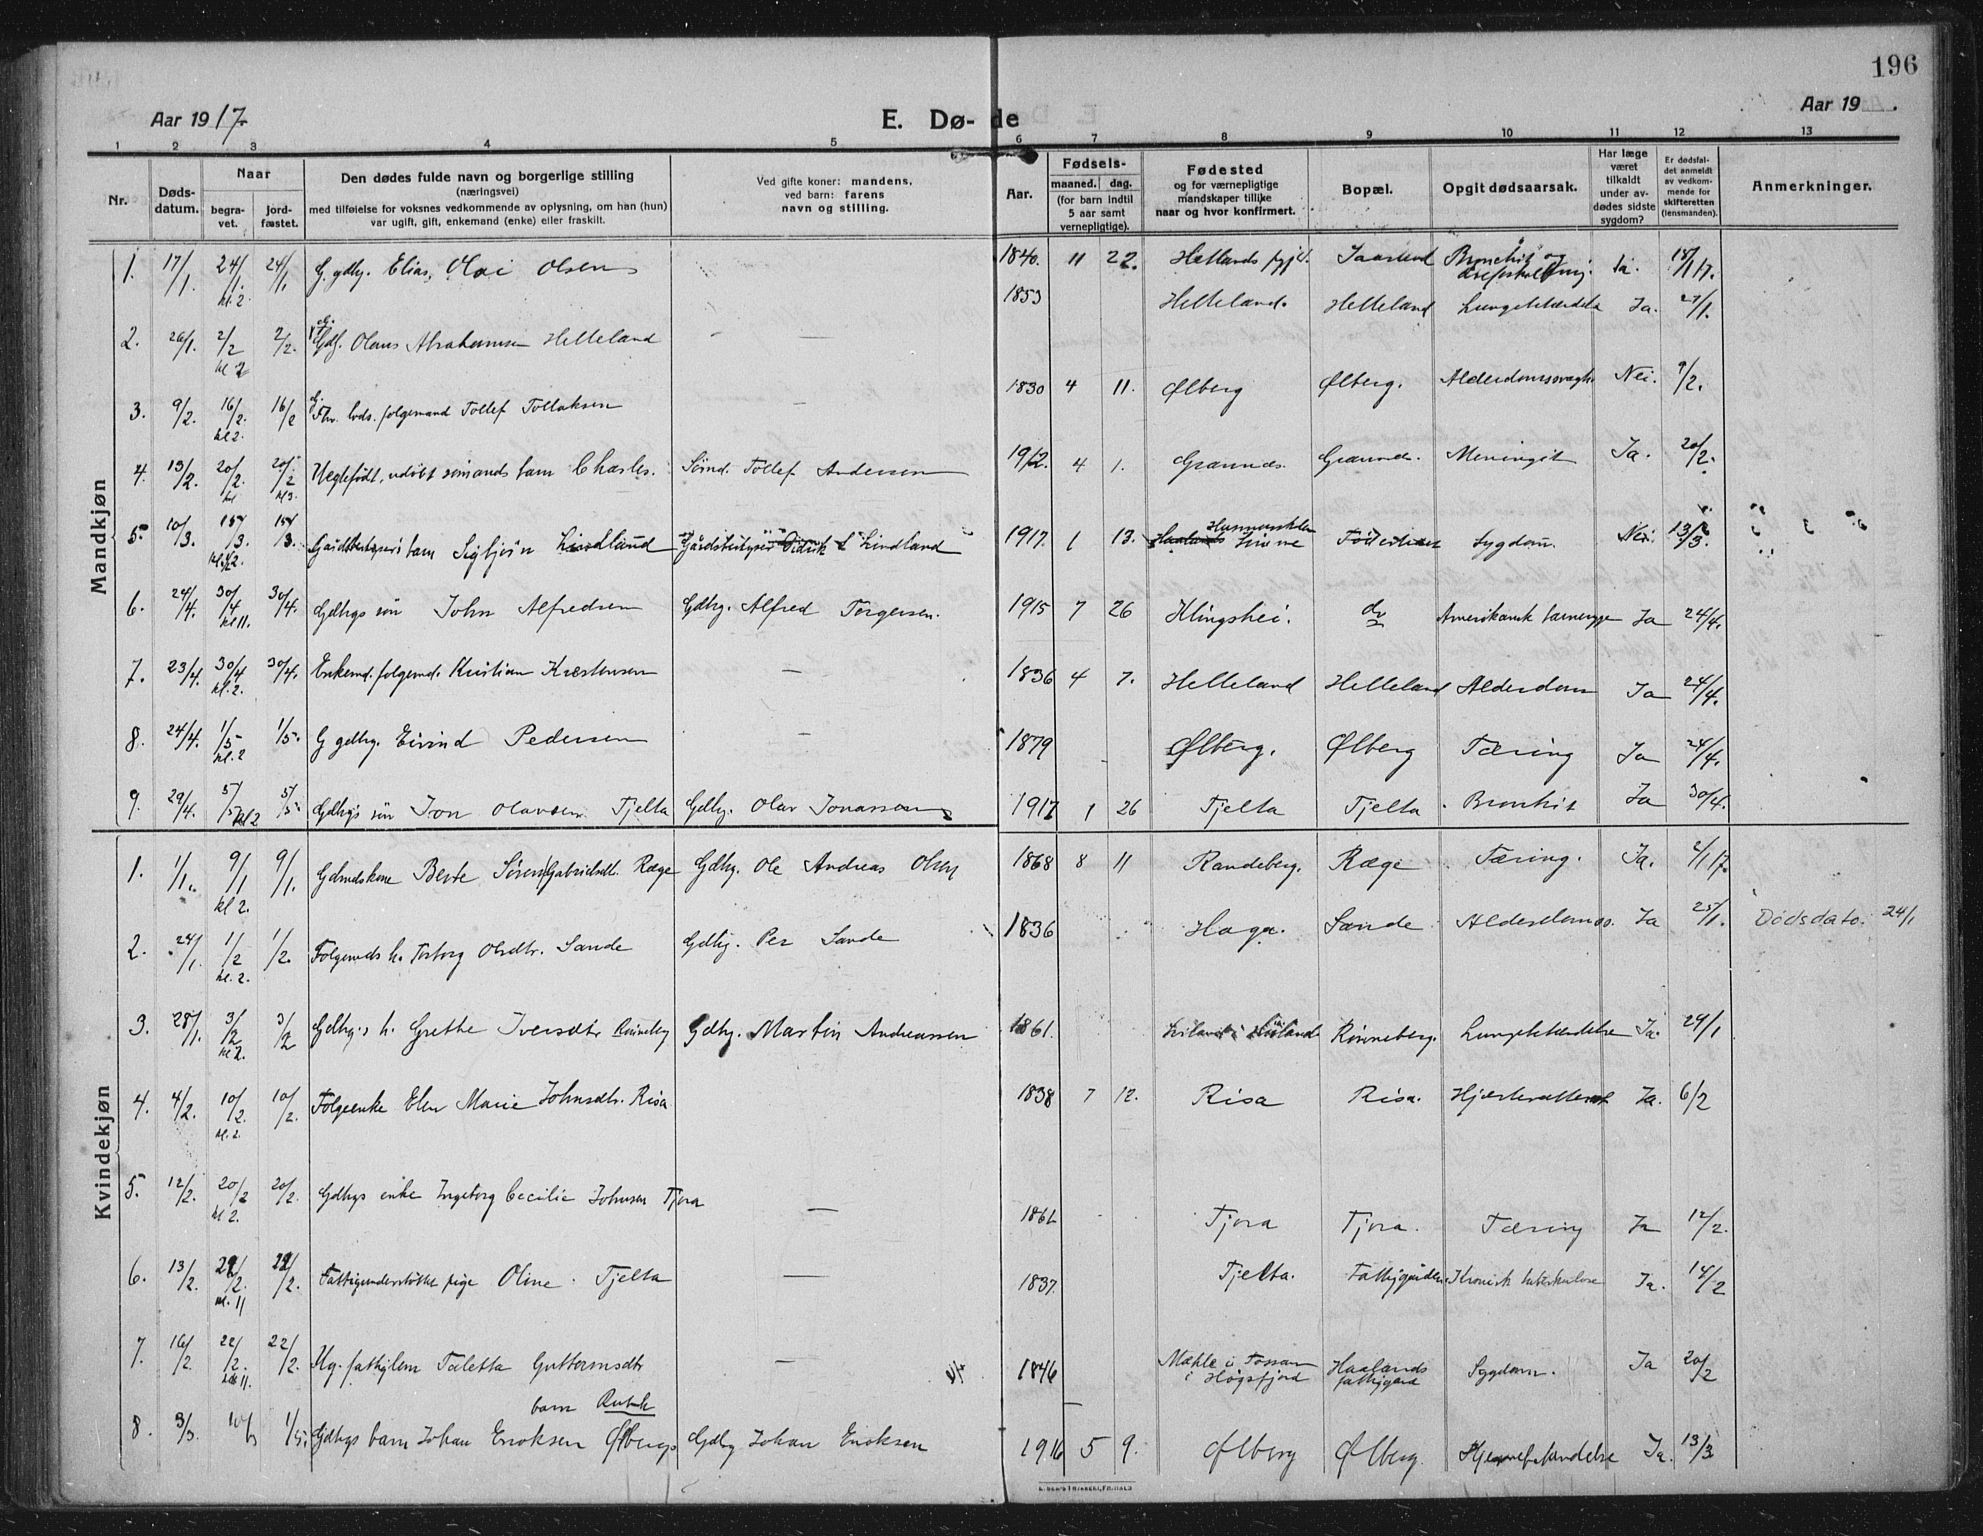 196
Aar 1917.
E. Dø- de
Aar 19 .
1 2 3 4 5 6 7 8 9 10 11 12 13
Nr.
Døds-
datum.
Naar
begra-
vet.
jord-
fæstet.
Den dødes fulde navn og borgerlige stilling
(næringsvei)
med tilføielse for voksnes vedkommende av oplysning, om han (hun)
var ugift, gift, enkemand (enke) eller fraskilt.
Ved gifte koner: mandens,
ved barn: farens
navn og stilling.
Aar.
Fødsels-
maaned. dag.
(for barn indtil
5 aar samt
vernepligtige).
Fødested
og for værnepligtige
mandskaper tillike
naar og hvor konfirmert.
Bopæl.
Opgit dødsaarsak.
Har læge
været
tilkaldt
under av-
dødes sidste
sygdom?
Er dødsfal-
det anmeldt
av vedkom-
mende for
skifteretten
(lensmanden).
Anmerkninger.
Mandkjøn
1. 17/1. 24/1. kl. 2 24/1. G. gdbg. Elias Olai Olsen 1840. 11 22. Jaasund Bronchit og Ja. 18/1 17.
2. 26/1. 2/2 kl 2 2/2. Olaus Abrahamsen Helleland — 1853 Helleland. Helleland Lungebetændelse Ja. 27/1.
3. 9/2. 16/2. kl 2. 16/2 folgemand Tollef Tollaksen 1830 4 11. Ølberg Ølberg. Nei. 9/2.
4. 13/2. 20/2. kl 20/2 kl 3. Uegtefødt, barn Charles. Sømd. Tollef Andersen 1912. 4 1. Grannes. Grannes. Meningit Ja. 20/2.
5. 10/3. 15/3. 15/3. Gårdbestyrers barn Sigbjørn Lindland Gårdsbestyrer Didrik L Lindland 1917. 1 13. Sygdom. Nei. 13/3.
6. 24/4. 30/4 kl 11. 30/4. Gdbgs søn John Alfredsen Gdbg. Alfred Torgersen. 1915 7 26 Klingshei. do Ja 24/4.
7. 23/4. 30/4 kl. 2. 30/4. Enkemd. folgemd. Kristian Kristensen — 1836 4 7. Helleland Helleland Alderdom Ja 24/4.
8. 24/4. 1/5 kl. 2 1/5. G gdbg. Eivind Pedersen — 1879 Ølberg. Ølberg Tæring Ja 24/4.
9. 29/4. 5/5 kl 2 5/5. Gdbgs søn Olavsen Tjelta Gdbg. Olav Jonassen 1917 1 26 Tjelta Tjelta Bronkit Ja 30/4.
Kvindekjøn
1. 1/1. 9/1 kl 2. 9/1. Gdmdskone Berte Gabrielsdt. Ræge Gdbg. Ole Andreas Olsen 1868 8 11 Randeberg. Ræge Tæring. Ja. 2/1 17.
2. 24/1. 1/2 kl. 2. 1/2. Folgemds h. Torborg Olsdtr. Sande Gdbg. Per Sande 1836 Haga. Sande Ja 25/1. Dødsdato. 24/1
3. 28/1. 3/2 kl 2. 3/2 Gdbg.s h. Grethe Iversdtr Rønneberg Gdbg. Martin Andreassen 1861. Rønneberg. Lungebetændelse Ja. 29/1
4. 4/2. 10/2. kl. 2. 10/2. Folgeenke Elen Marie Johnsdtr. Risa 1838 7 12. Risa Risa. Ja. 6/2
5. 12/2. 20/2 kl 2. 20/2. Gdbgs enke Ingeborg Cecilie Johnsen Tjora — Tjora Tjora. Tæring Ja 12/2.
6. 13/2. kl. 11 Fattigunderstøttet pige Oline Tjelta — 1837. Tjelta. Fattiggården. Kronisk tuberkulose Ja. 14/2
7. 16/2. 22/2. kl 11. 22/2. Ug. fattiglem Taletta Guttormsdtr — 1846 Mæhle i Fossan i Høgsfjord Haalands fattiggard Sygdom. Ja 20/2
barn
8. 3/3. 10/3 1/5. Gdbgs barn Johan Enoksen Ølbergs Gdbg Johan Enoksen 1916 5 9. Ølberg Ølberg. Hjernebetændelse Ja. 13/3